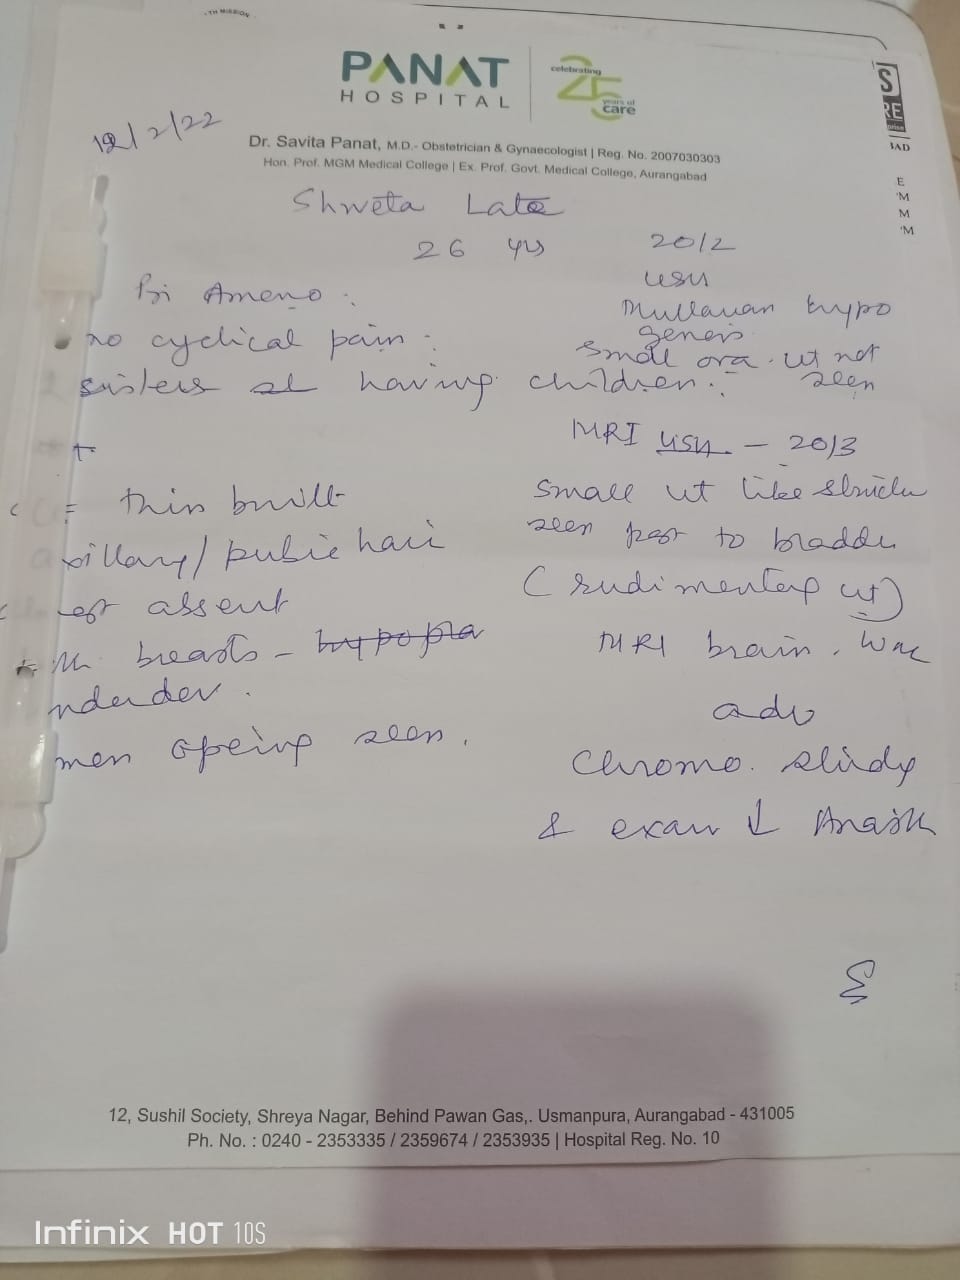 TH MISSION
PANAT
HOSPITAL
celebrating
25
years of
care
S
RE
IAD
E
'M
M
'M
12/2/22
Dr. Savita Panat, M.D.- Obstetrician & Gynaecologist | Reg. No. 2007030303
Hon. Prof. MGM Medical College | Ex. Prof. Govt. Medical College, Aurangabad
Shweta
26 yrs
Pri Ameno.
no cyclical pain.
sisters having children.
thin built
xillary/pubic hair
absent
breasts -
nderdev.
men opening seen.
2012
USG
Mullerian hypo
genesis
small ova. ut not
seen
MRI USG. - 2013
small ut like structure
seen post to bladder
(rudimentary ut)
MRI brain. WNL
adv
Chromo. study
& exam ↓
12, Sushil Society, Shreya Nagar, Behind Pawan Gas,. Usmanpura, Aurangabad - 431005
Ph. No. : 0240 - 2353335 / 2359674 / 2353935 | Hospital Reg. No. 10
Infinix HOT 10S